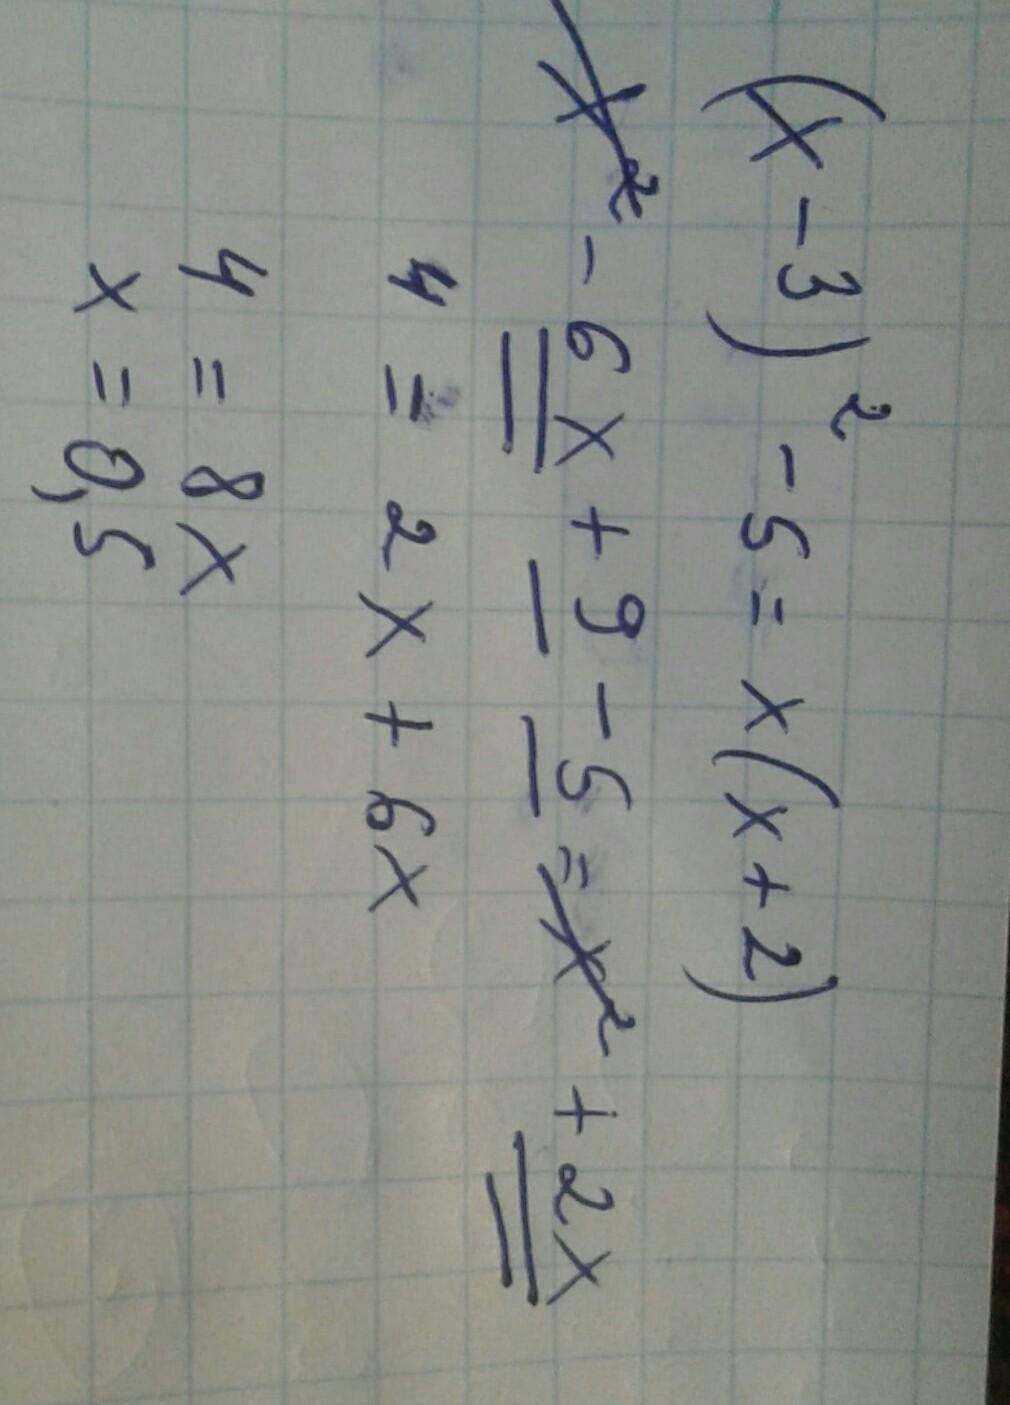 (x-3)² -5=x(x+2)
x² -6x+9-5=x²+2x
4=2x+6x
4=8x
x=0,5